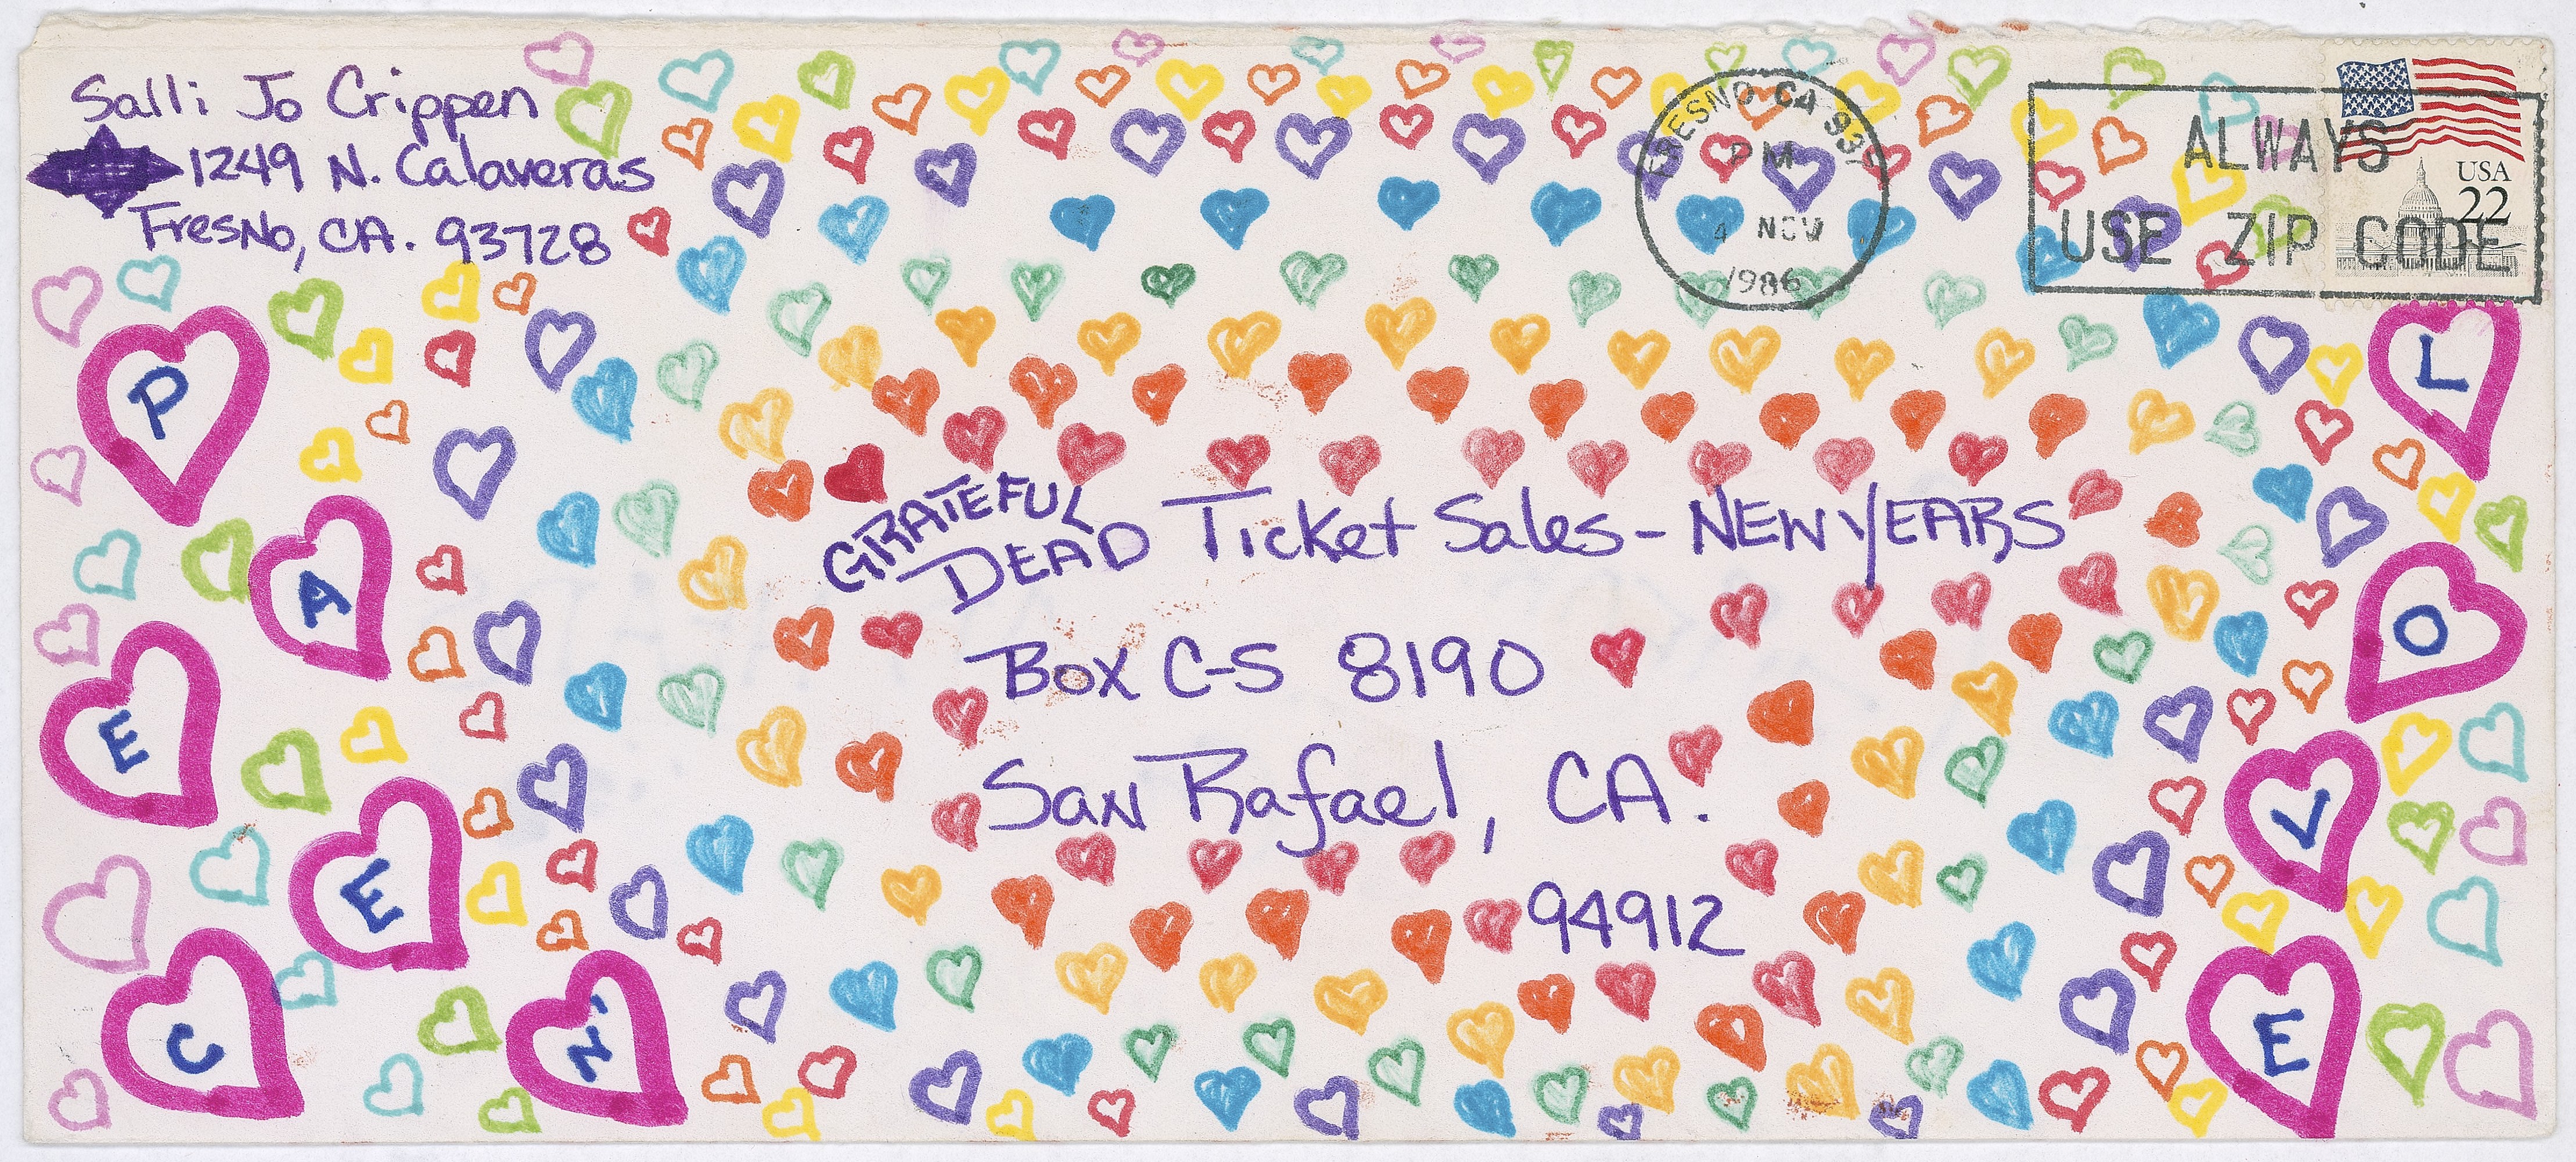 Salli Jo Crippen
1249 N. Calaveras
Fresno, CA. 93728
FRESNO CA 937
PM
4 NOV
1986
ALWAYS
USE ZIP CODE
USA
22
GRATEFUL
DEAD Ticket Sales - NEW YEARS
Box C-S 8190
San Rafael, CA.
94912
P
E
A
C
E
N'
L
O
V
E